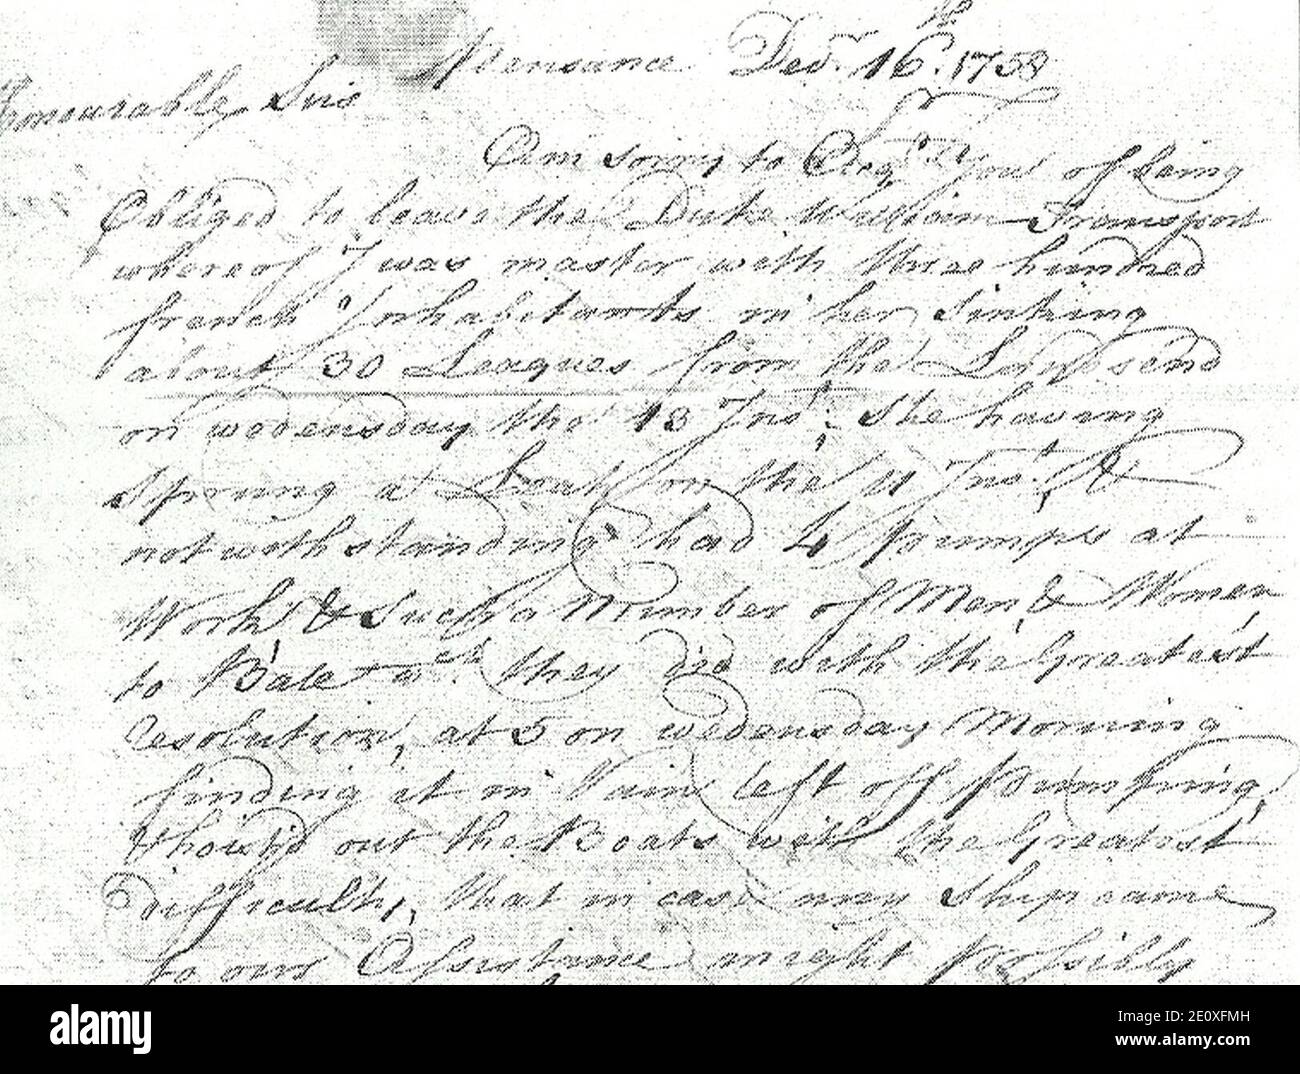 Pensance Decr. 16th. 1758
Honourable Sirs
Am sorry to Acqt. You of being
Obliged to leave the Duke William Transport
whereof I was master with three hundred
french Inhabitants in her Sinking
about 30 Leagues from the Lands end
on wedensday the 13 Inst. She having
Sprung a Leak on the 11 Inst. &
notwithstanding had 4 Pumps at
Work, & Such a Number of Men & Women
to Bale wch. they did with the Greatest
resolution, at 5 on wedensday Morning
finding it in Vain left off Pumping,
& hoist'd out the Boats with the Greatest
difficulty, that in case any Ship came
to our Assistance might possibly
alamy
alamy
Image ID: 2E0XFMH
www.alamy.com